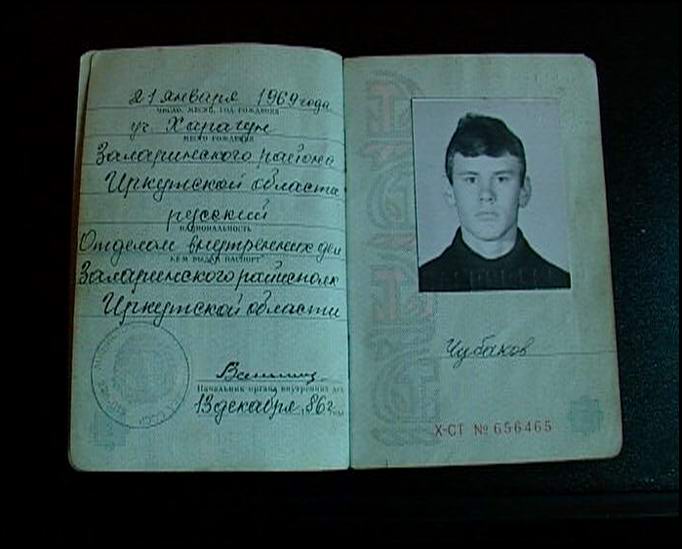 21 января 1969 года
ЧИСЛО, МЕСЯЦ, ГОД РОЖДЕНИЯ
уч. Харагун
МЕСТО РОЖДЕНИЯ
Заларинского района
Иркутской области
русский
НАЦИОНАЛЬНОСТЬ
Отделом внутренних дел
КЕМ ВЫДАН ПАСПОРТ
Заларинского райисполк
Иркутской области
Начальник органа внутренних дел
13 декабря 86 г.
Чубаков
X-СТ № 656465